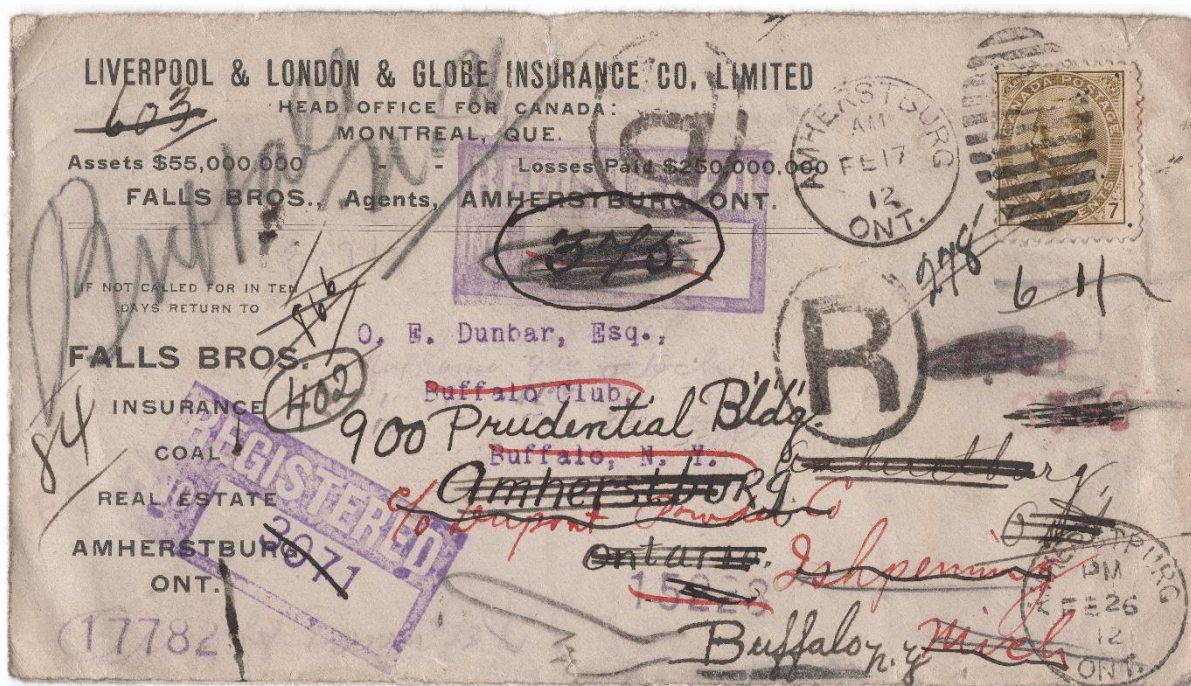 LIVERPOOL & LONDON & GLOBE INSURANCE CO. LIMITED
603
HEAD OFFICE FOR CANADA:
MONTREAL, QUE.
Assets $55,000,000 - - Losses Paid $250,000,000
FALLS BROS., Agents, AMHERSTBURG, ONT.
Buffalo N.Y.
R
REGISTERED
376
AMHERSTBURG
AM
FE 17
12
ONT.
CANADA POSTAGE
7
278
6 4
IF NOT CALLED FOR IN TEN
DAYS RETURN TO
866
FALLS BROS.
INSURANCE
COAL
REAL ESTATE
AMHERSTBURG
ONT.
84
402
R
O. E. Dunbar, Esq.,
Buffalo Club,
900 Prudential Bldg.
Buffalo, N. Y.
Amherstburg
Amherstburg
c/o Dupont Powder Co
Ontario.
Ishpeming
Mich
15228
Buffalo n.y.
REGISTERED
3071
17782
AMHERSTBURG
PM
FE 26
12
ONT.